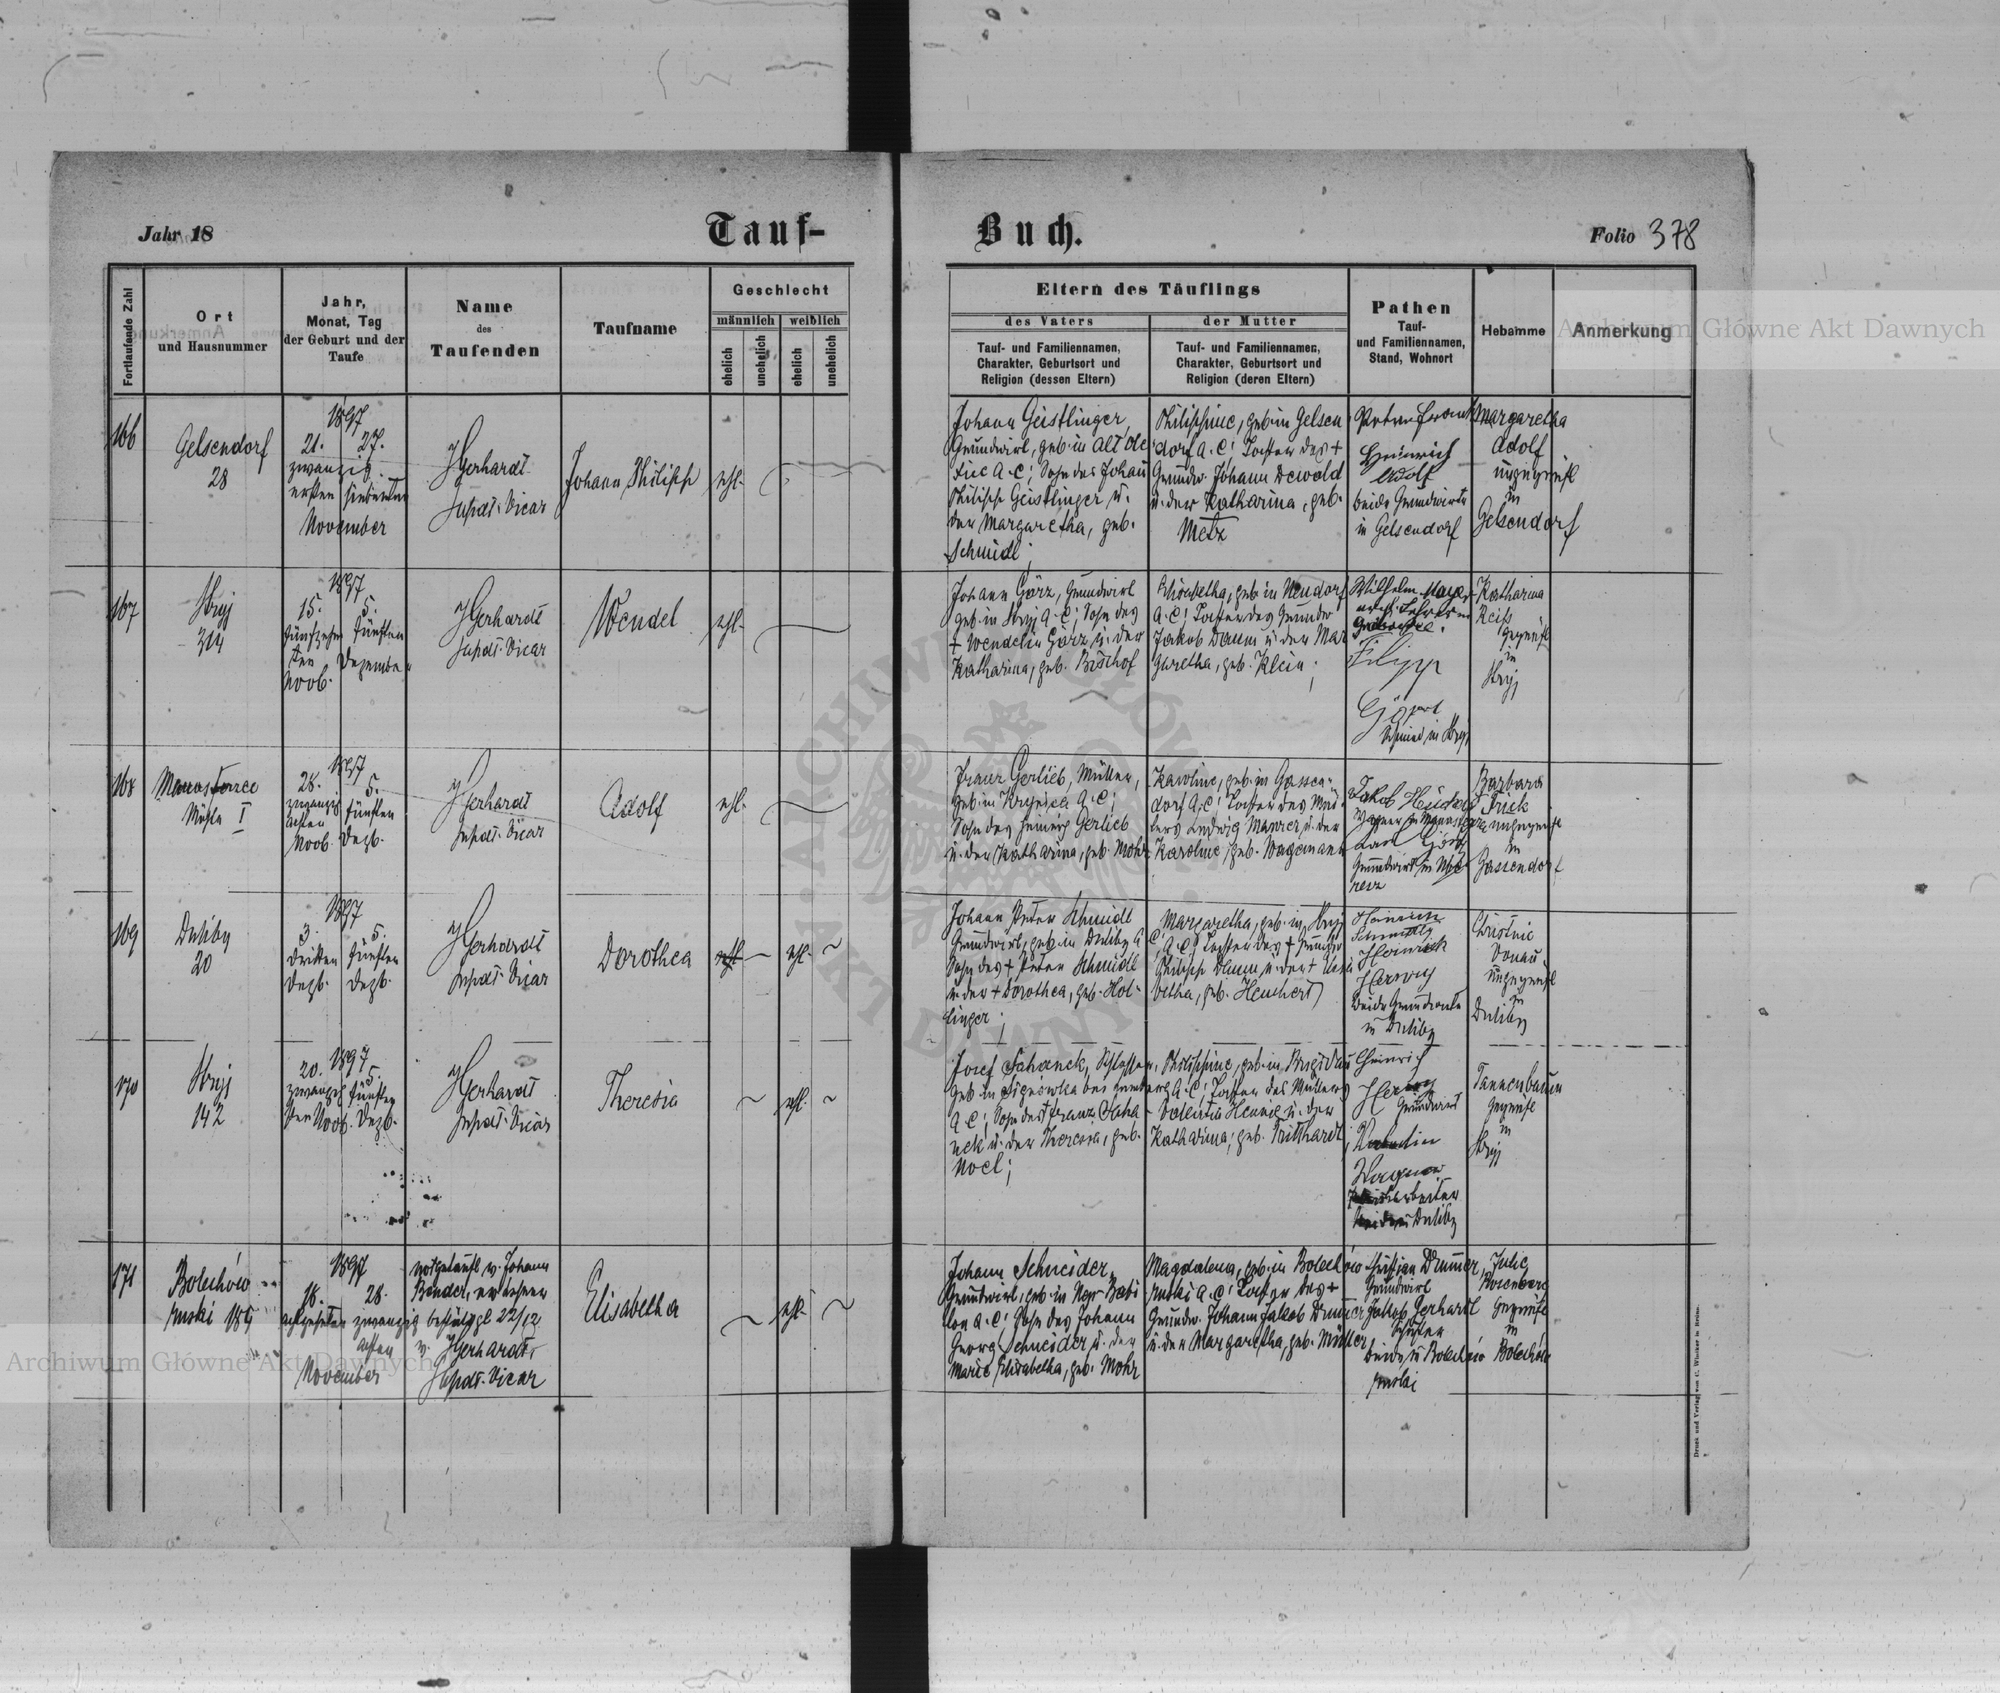 Jahr 18
Tauf-
Buch.
Folio 378
Fortlaufende Zahl
Ort
und Hausnummer
Jahr,
Monat, Tag
der Geburt und der
Taufe
Name
des
Taufenden
Taufname
Geschlecht
männlich weiblich
ehelich unehelich ehelich unehelich
Eltern des Täuflings
des Vaters
Tauf- und Familiennamen,
Charakter, Geburtsort und
Religion (dessen Eltern)
der Mutter
Tauf- und Familiennamen,
Charakter, Geburtsort und
Religion (deren Eltern)
Pathen
Tauf-
und Familiennamen,
Stand, Wohnort
Hebamme
Anmerkung
166
Gelsendorf
28
1897
21. 27.
zwanzig
ersten siebenten
November
Gerhardt
Supdt. Vicar
Johann Philipp
ehl.
Johann Geistlinger,
Grundwirt, geb. in Alt Ole
A. C; Sohn des Johann
Philipp Geistlinger u.
der Margaretha, geb.
Schmidt
Philippine, geb. in Gelsen
dorf A. C; Tochter des +
Grundw. Johann Dewald
u. der Katharina, geb.
Metz
Heinrich
Adolf
beide Grundwirte
in Gelsendorf
Margaretha
Adolf
ungeprüft
in
Gelsendorf
167
Stryj
314
1897
15. 5.
fünfzehn fünften
ten Dezember
Novb.
Gerhardt
Supdt. Vicar
Wendel
ehl.
Johann Görz, Grundwirt
geb. in Stryj A. C; Sohn des
+ Wendelin Görz u. der
Katharina, geb. Bischof
Elisabetha, geb. in Neudorf
A. C; Tochter des Grundw
Jakob Daum u. der Mar
garetha, geb. Klein;
Wilhelm Mayer
Filipp
Schmied in Stryj
Katharina
Reiss
geprüft
in
Stryj
168
Mühle I
1897
28. 5.
zwanzig fünften
achten Dezb.
Novb.
Gerhardt
Supdt. Vicar
Adolf
ehl.
Franz Gerlieb, Müller,
geb. in A. C;
Sohn des Heinrich Gerlieb
u. der Katharina, geb. Mohr
Karoline, geb. in Gassen-
dorf A. C; Tochter des Mül
lers Ludwig Maurer u. der
Karoline, geb. Wagemann
Jakob
Grundwirt in
Barbara
Frick
ungeprüft
in
Gassendorf
169
Duliby
20
1897
3. 5.
dritten fünften
Dezb. Dezb.
Gerhardt
Supdt. Vicar
Dorothea
ehl.
Johann Peter Schmidt
Grundwirt, geb. in Duliby A
C, Sohn des + Peter Schmidt
u. der + Dorothea, geb. Hol-
linger;
Margaretha, geb. in Stryj
A. C; Tochter des + Grundw
Philipp Daum u. der + Elisa
betha, geb. Heuchert
Heinrich
Heinrich
Herwig
beide Grundwirte
in Duliby
Christine
Donau
ungeprüft
in
Duliby
170
Stryj
142
1897
20. 5.
zwanzig fünften
sten Novb. Dezb.
Gerhardt
Supdt. Vicar
Theresia
ehl.
Josef Sahanek, Schlosser,
geb. in bei Lemberg
A. C; Sohn des + Franz Saha-
nek u. der Theresia, geb.
Noel;
Philippine, geb. in Brigidau
A. C; Tochter des Müllers
Valentin Hennig u. der
Katharina, geb. Tritthardt
Heinrich
Herwig
Grundwirt
Valentin
Wagner
beide in Duliby
Tannenbaum
geprüft
in
Stryj
171
Bolechów
ruski 185
1897
18. 28.
achtzehnten zwanzig
achten
November
notgetauft v. Johann
Bender,
bestätigt 22/12
v. Gerhardt
Supdt. Vicar
Elisabetha
ehl.
Johann Schneider,
Grundwirt, geb. in Neu-Babi
lon A. C; Sohn des Johann
Georg Schneider u. der
Marie Elisabetha, geb. Mohr
Magdalena, geb. in Bolechów
ruski A. C; Tochter des +
Grundw. Johann Jakob Drumer
u. der Margaretha, geb. Müller
Christian Drumer,
Grundwirt
Jakob Gerhardt
Schuster
beide in Bolechów
ruski
Julie
Rosenberg
geprüft
in
Bolechów
Druck und Verlag von C. Winiker in Brünn.
Archiwum Główne Akt Dawnych
Archiwum Główne Akt Dawnych
ARCHIWUM GŁÓWNE
AKT DAWNYCH